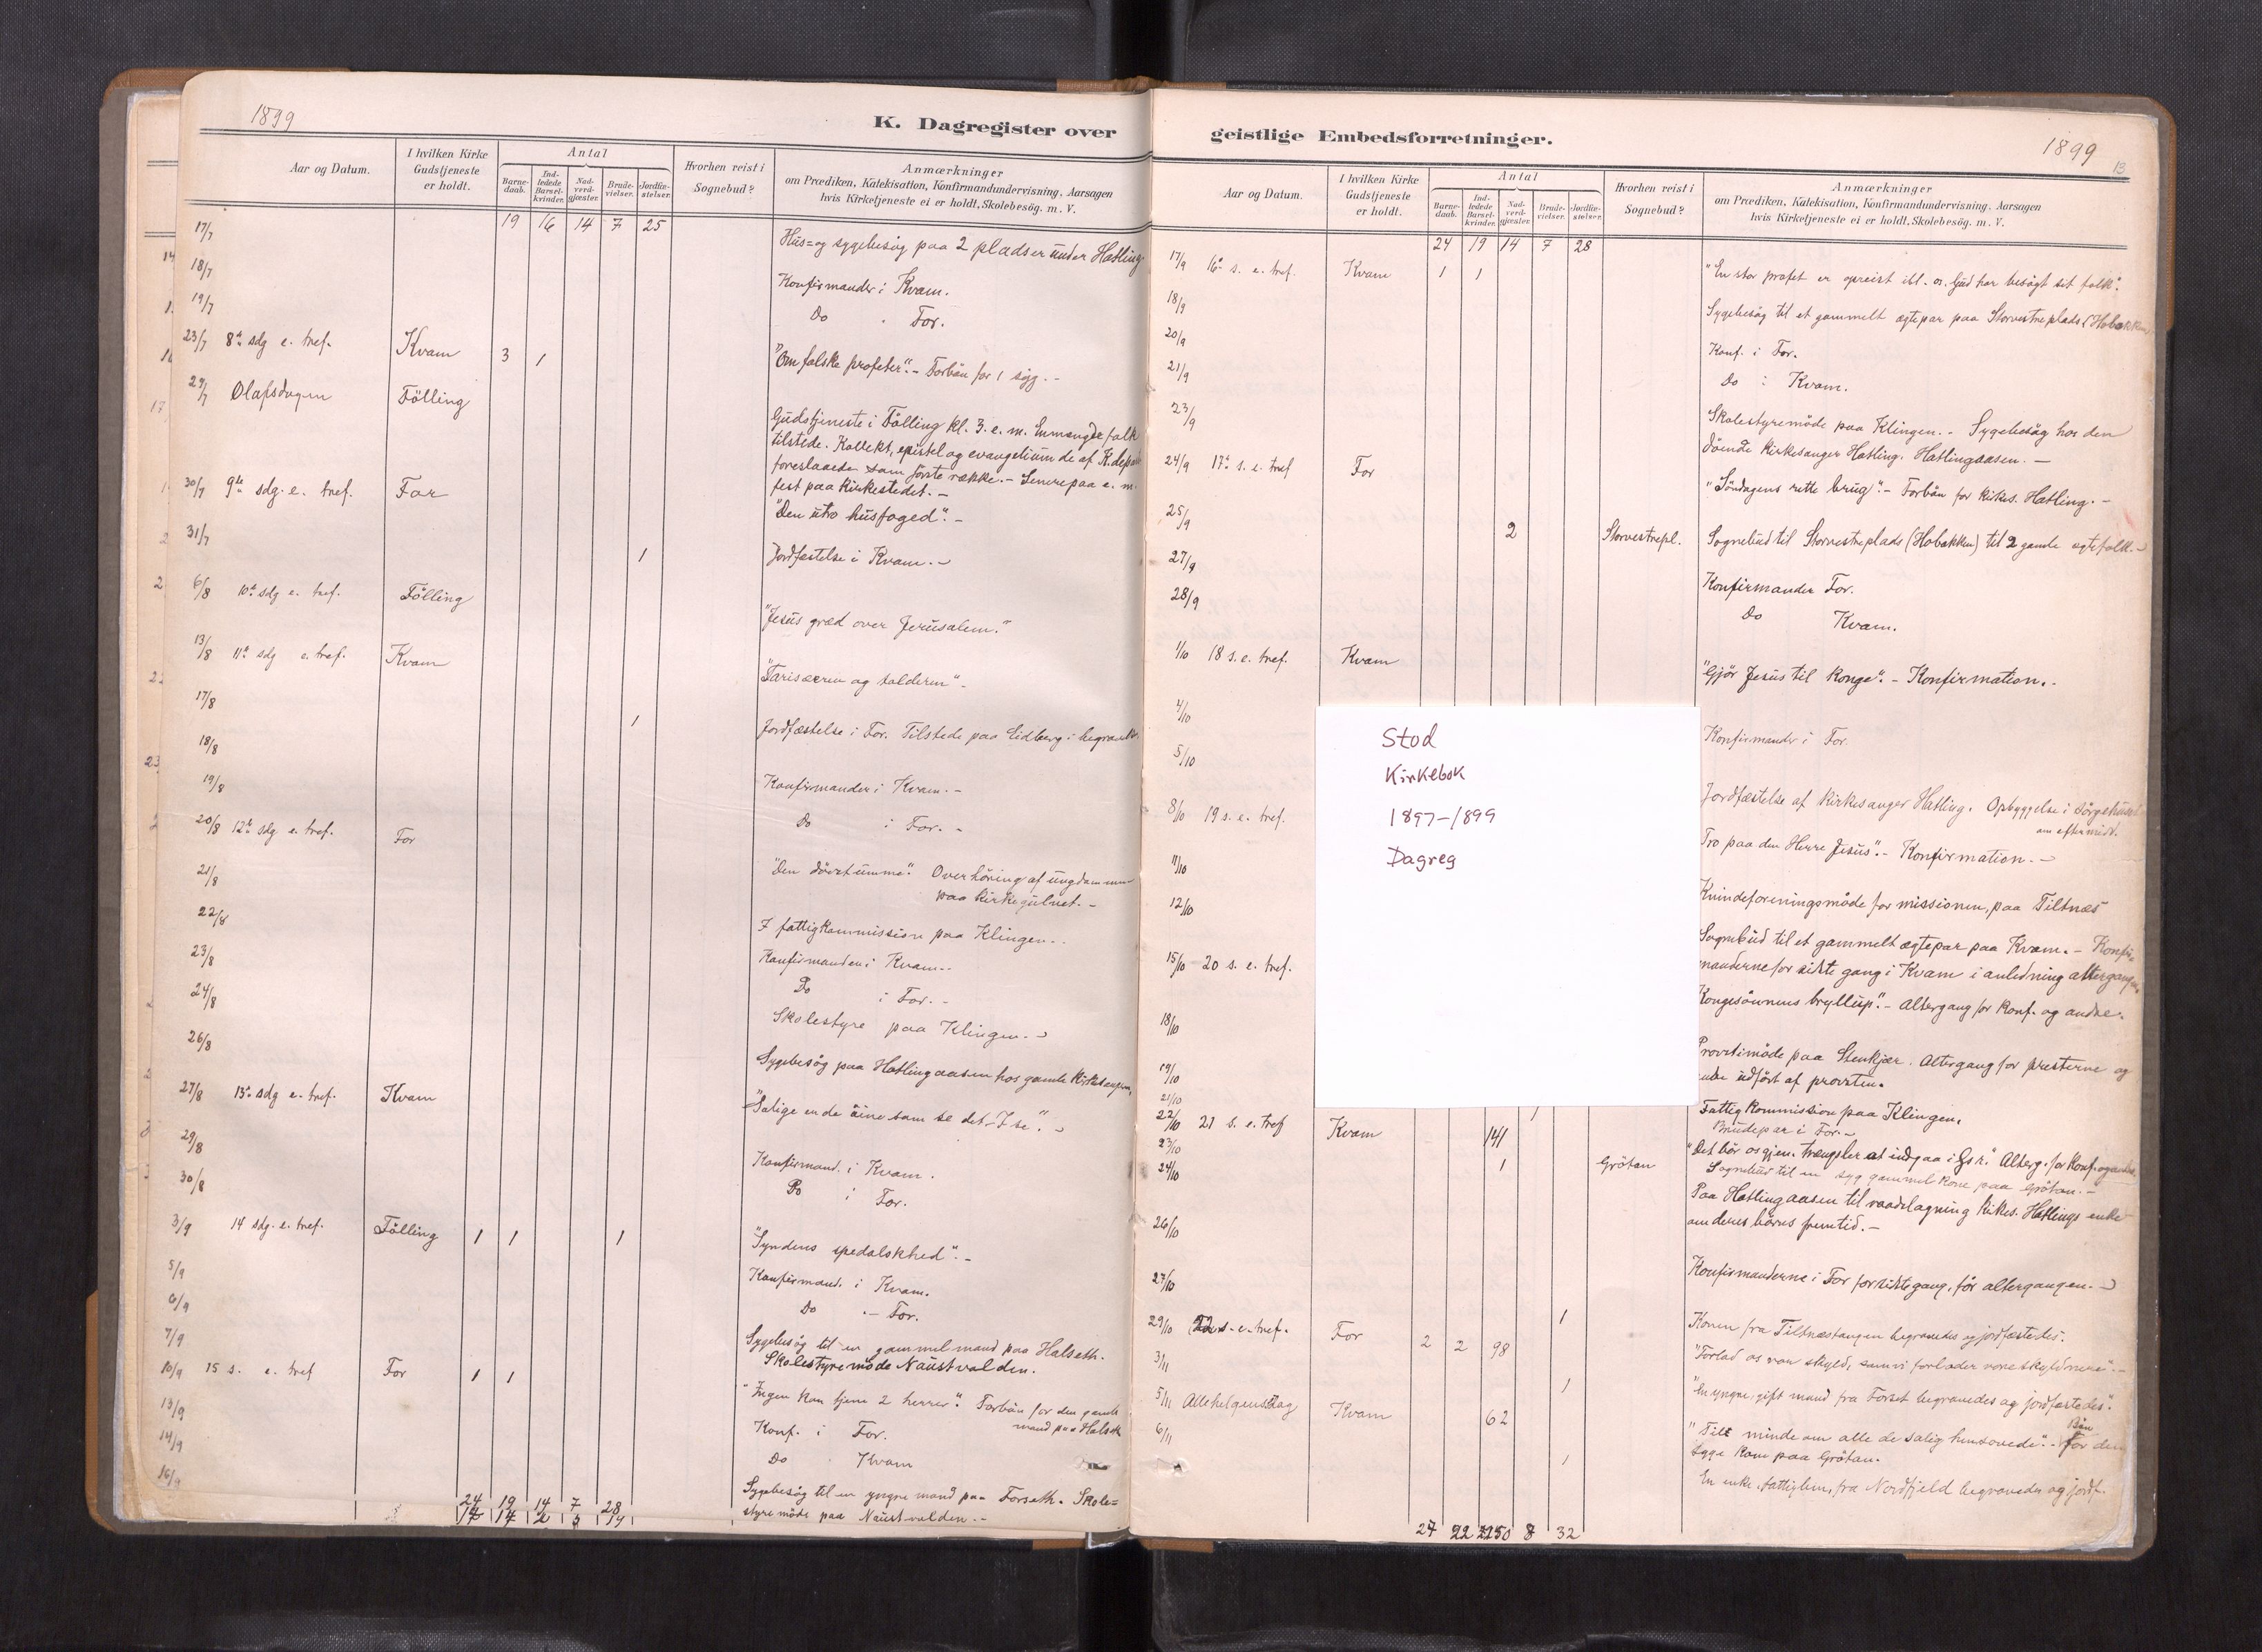 1899
K. Dagregister over
Aar og Datum.
I hvilken Kirke Gudstjeneste er holdt.
Antal
Barne-daab.
Ind-ledede Barsel-kvinder.
Nad-verd-gjæster.
Brude-vielser.
Jordfæ-stelser.
Hvorhen reist i Sognebud?
Anmærkninger
om Prædiken, Katekisation, Konfirmandundervisning, Aarsagen
hvis Kirketjeneste ei er holdt, Skolebesøg. m. V.
19 16 14 7 25
17/7 Hus= og sygebesøg paa 2 pladser under Hatling
18/7 Konfirmander i Kvam.
19/7 Do For.
23/7 8de sdg e. tref. Kvam 3 1 "Om falske profeter". - Forbøn for 1 syg. -
29/7 Olafsdagen Følling Gudstjeneste i Følling kl. 3. e. m. En mengde folk
tilstede. Kollekt, epistel og evangelium de af K.depart
foreslaaede som første række. - Senere paa e. m.
fest paa kirkestedet. -
30/7 9de sdg. e. tref. For "Den utro husfoged". -
31/7 1 Jordfæstelse i Kvam. -
6/8 10de sdg e. tref. Følling "Jesus græd over Jerusalem."
13/8 11te sdg e. tref. Kvam "Farisæeren og tolderen" -
17/8 1 Jordfæstelse i For. Tilstede paa Eidberg i begravelse
18/8 Konfirmander i Kvam. -
19/8 Do i For. -
20/8 12te sdg e. tref. For "Den døvstumme". Overhøring af ungdommen
paa kirkegulvet. -
21/8 I fattigkommission paa Klingen. -
22/8 Konfirmander i Kvam. -
23/8 Do i For. -
24/8 Skolestyre paa Klingen. -
26/8 Sygebesøg paa Hatlingaasen hos gamle Kirkesanger,
27/8 13de sdg e. tref. Kvam "Salige er de øine som se det I se". -
29/8 Konfirmand. i Kvam.
30/8 Do i For.
3/9 14 sdg. e. tref. Følling 1 1 1 "Syndens spedalskhed". -
5/9 Konfirmand. i Kvam.
6/9 Do - For.
7/9 Sygebesøg til en gammel mand paa Halseth.
Skolestyremøde Naustvolden.
10/9 15 s. e. tref For 1 1 "Ingen kan tjene 2 herrer". Forbøn for den gamle
mand paa Halseth
13/9 Konf. i For.
14/9 Do Kvam
16/9 Sygebesøg til en yngre mand paa Forseth. Skole=
styremøde paa Naustvolden. -
24 19 14 7 28
geistlige Embedsforretninger.
1899
13
Aar og Datum.
I hvilken Kirke Gudstjeneste er holdt.
Antal
Barne-daab.
Ind-ledede Barsel-kvinder.
Nad-verd-gjæster.
Brude-vielser.
Jordfæ-stelser.
Hvorhen reist i Sognebud?
Anmærkninger
om Prædiken, Katekisation, Konfirmandundervisning, Aarsagen
hvis Kirketjeneste ei er holdt, Skolebesøg. m. V.
24 19 14 7 28
17/9 16de s. e. tref. Kvam 1 1 "En stor profet er opreist ibl. os. Gud har besøgt sit folk".
18/9 Sygebesøg til et gammelt ægtepar paa Storvestreplads (Hobakken
20/9 Konf. i For.
21/9 Do i Kvam.
23/9 Skolestyremøde paa Klingen. - Sygebesøg hos den
døende kirkesanger Hatling. Hatlingaasen. -
24/9 17de s. e. tref For "Søndagens rette brug". - Forbøn for kirkes. Hatling. -
25/9 2 Storvestrepl. Sognebud til Storvestreplads (Hobakken) til 2 gamle egtefolk. -
27/9 Konfirmander For.
28/9 Do Kvam.
1/10 18 s. e. tref. Kvam "Gjør Jesus til konge". - Konfirmation. -
4/10 Konfirmander i For.
5/10 Jordfæstelse af kirkesanger Hatling. Opbyggelse i sørgehuset
om eftermid.
8/10 19 s. e. tref. Tro paa den Herre Jesus". - Konfirmation. -
11/10 Kvindeforeningsmøde for missionen, paa Tiltnæs
12/10 Sognebud til et gammelt ægtepar paa Kvam. - Konfir=
manderne for sidste gang i Kvam i anledning altergangen,
15/10 20 s. e. tref. Kongesønnens bryllup". - Altergang for konf. og andre.
18/10 Provstimøde paa Stenkjær. Altergang for presterne og
udført af provsten.
19/10 Fattigkommission paa Klingen,
21/10 1 Brudepar i For. -
22/10 21 s. e. tref Kvam 141 "Det bør os gjen. trængsler at indgaa i Gs r." Alterg. for konf. og andre
23/10 1 Grötan Sognebud til en syg gammel kone paa Grötan. -
24/10 Paa Hatlingaasen til raadslagning kirkes. Hatlings enke
om deres børns fremtid. -
26/10 Konfirmanderne i For for sidste gang, før altergangen. -
27/10 1 Konen fra Tiltnæstangen begravedes og jordfæstedes.
29/10 22 s. e. tref. For 2 2 98 "Forlad os vor skyld, som vi forlader vore skyldnere". -
3/11 1 En yngre, gift mand fra Forset begravedes og jordfæstedes.
5/11 Allehelgensdag Kvam 62 "Till minde om alle de salig hensovede". - Bøn for den
syge kone paa Grötan.
6/11 1 En enke, fattiglem, fra Nordfjeld begravedes og jordf.
27 22 8 32
Stod
Kirkebok
1897-1899
Dagreg